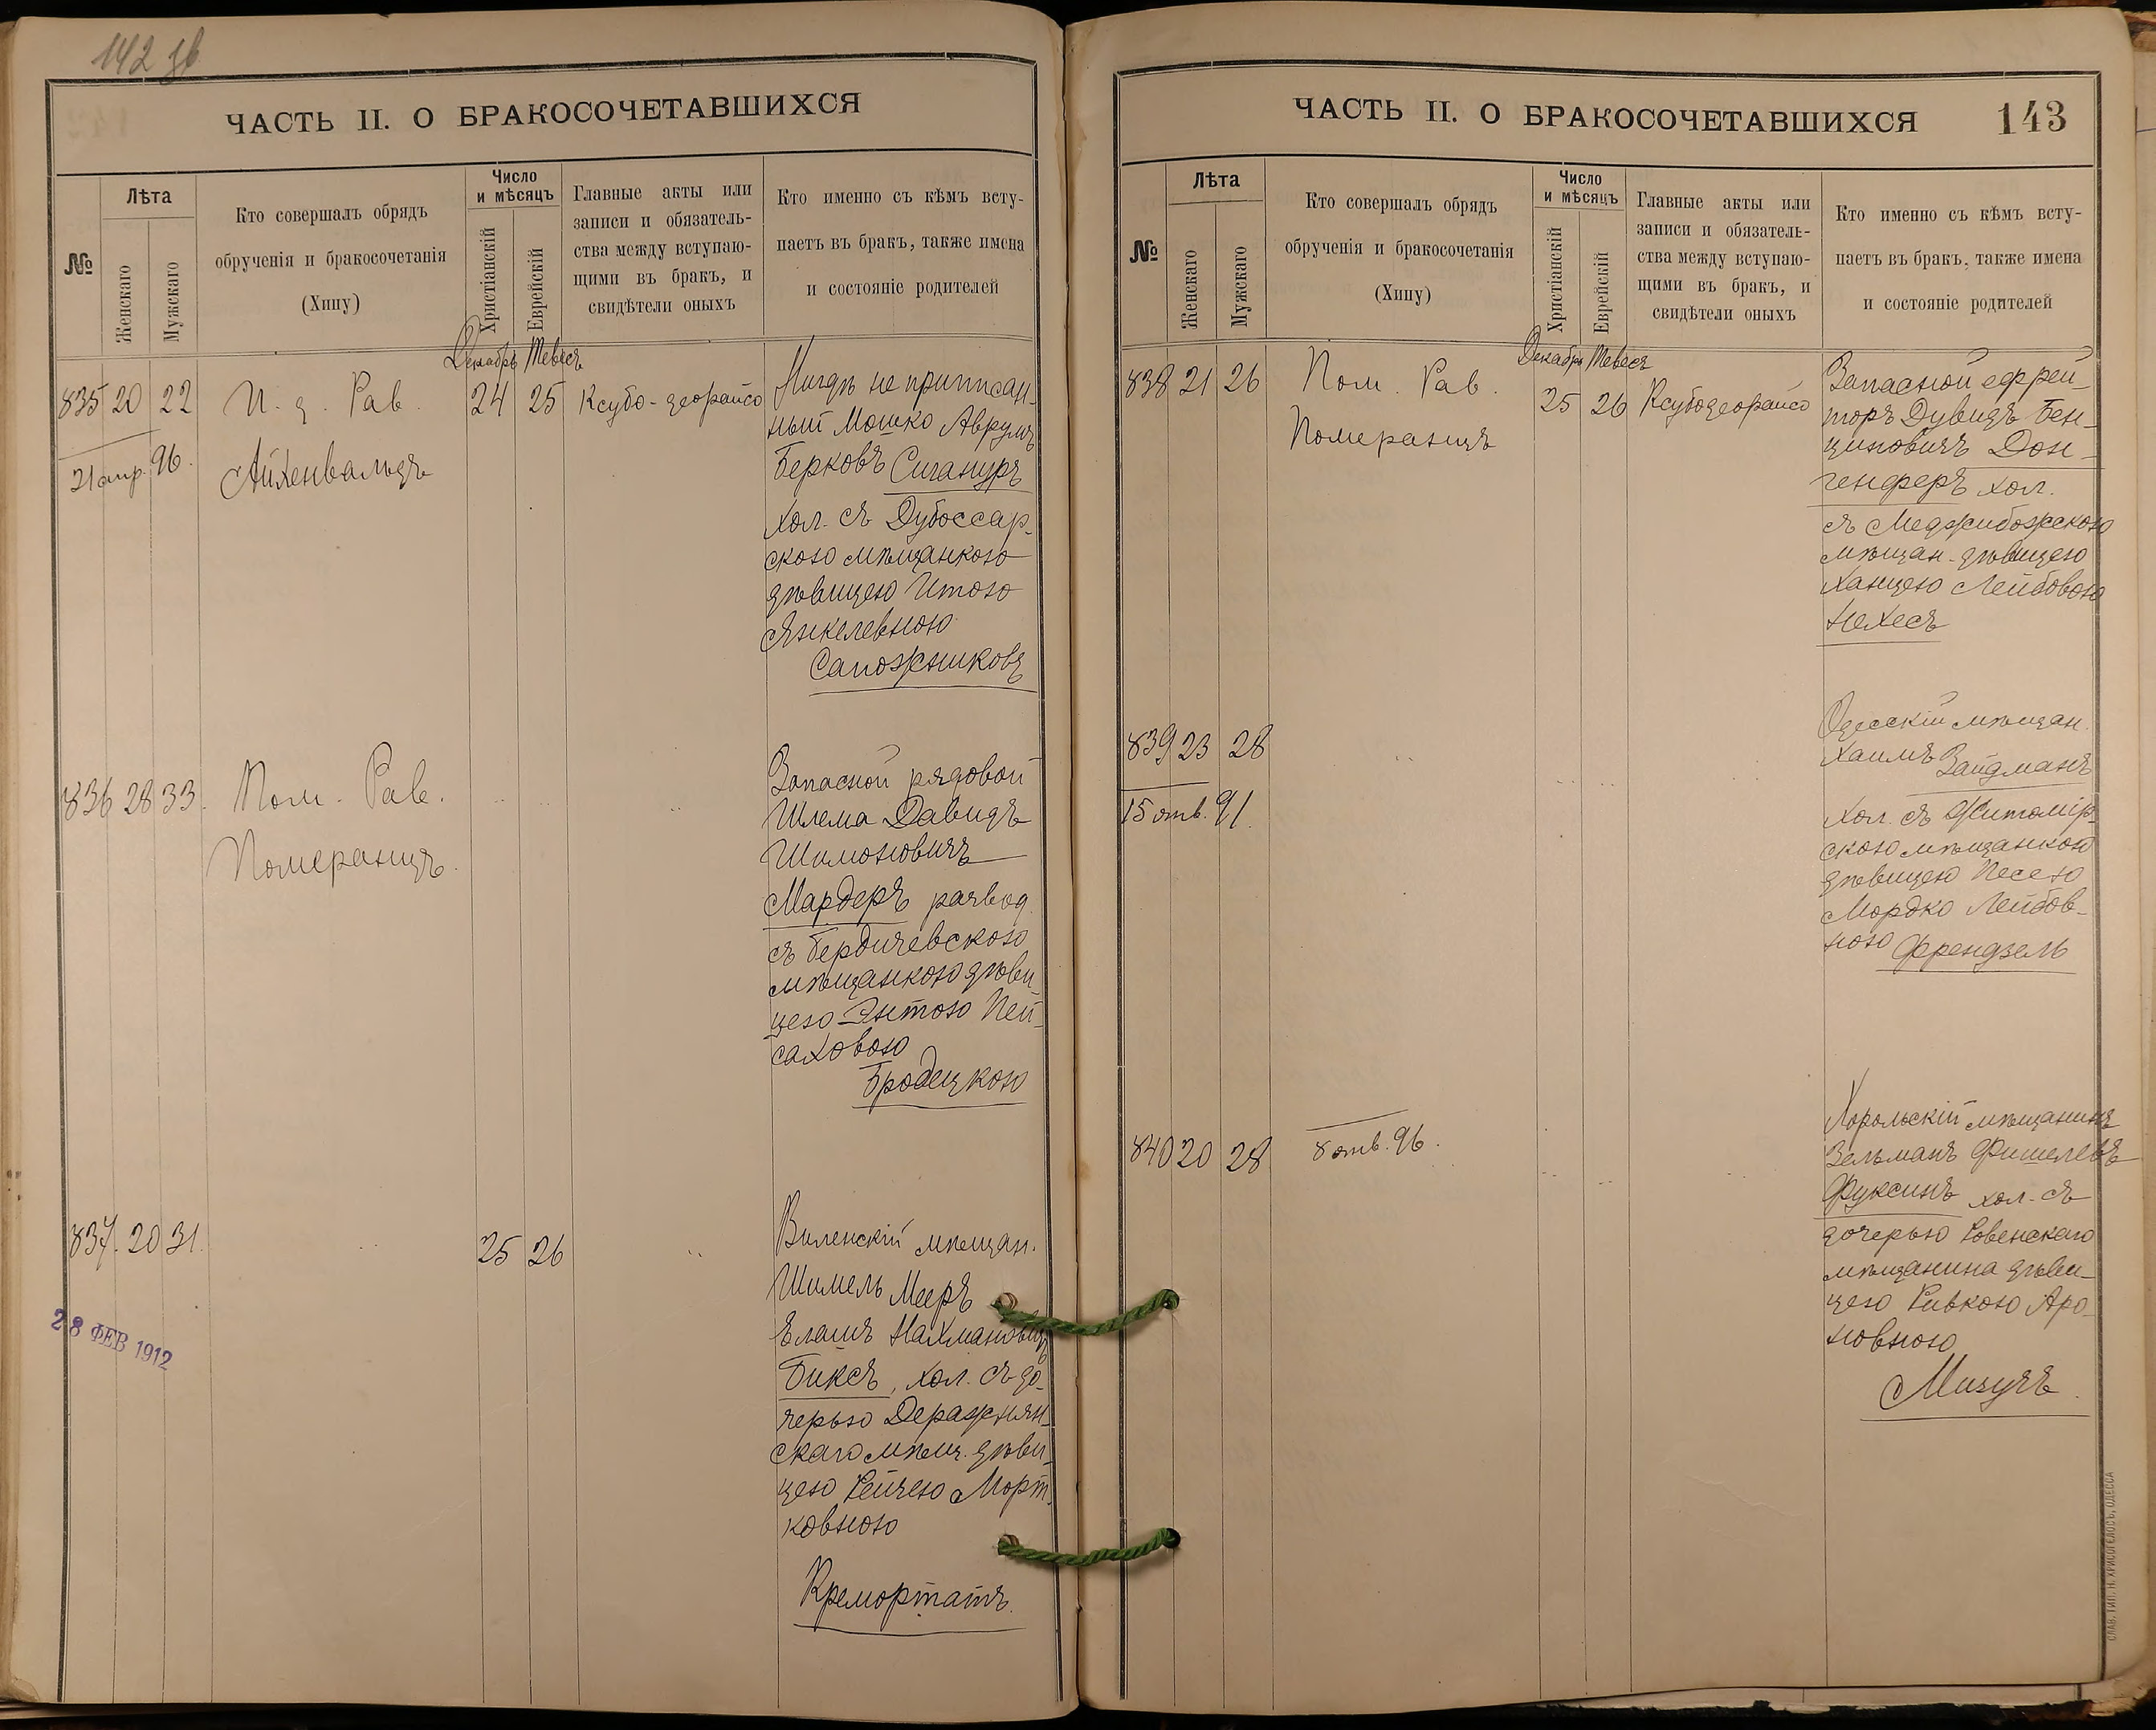 142 зв
ЧАСТЬ II. О БРАКОСОЧЕТАВШИХСЯ
№
Лѣта
Женскаго
Мужскаго
Кто совершалъ обрядъ
обрученія и бракосочетанія
(Хипу)
Число
и мѣсяцъ
Христіанскій
Еврейскій
Главные акты или
записи и обязатель-
ства между вступаю-
щими въ бракъ, и
свидѣтели оныхъ
Кто именно съ кѣмъ всту-
паетъ въ бракъ, также имена
и состояніе родителей
Декабрь Тевесъ
835 20 22 И. д. Рав. 24 25 Ксубо-деорайсо
21 апр. 96.
Айхенвальдъ
Нигдѣ не приписан-
ный Мошко Аврумъ
Берковъ Сигануръ
хол. съ Дубоссар-
скою мѣщанкою
дѣвицею Итою
Янкелевною
Сапожниковъ
836 28 33. Пом. Рав. .. .. ..
Померанцъ.
Запасной рядовой
Шлема Давидъ
Шимоновичъ
Мардеръ развод.
съ Бердичевскою
мѣщанкою дѣви-
цею Энтою Пей-
саховою
Бродецкою
837. 20 31. .. 25 26 ..
28 ФЕВ 1912
Виленскій мѣщан.
Шимель Мееръ
Еламъ Нахмановичъ
Биксъ, хол. съ до-
черью Деражнян-
скаго мѣщ. дѣви-
цею Рейзею Морт-
ковною
Кремортатъ.
ЧАСТЬ II. О БРАКОСОЧЕТАВШИХСЯ 143
№
Лѣта
Женскаго
Мужскаго
Кто совершалъ обрядъ
обрученія и бракосочетанія
(Хипу)
Число
и мѣсяцъ
Христіанскій
Еврейскій
Главные акты или
записи и обязатель-
ства между вступаю-
щими въ бракъ, и
свидѣтели оныхъ
Кто именно съ кѣмъ всту-
паетъ въ бракъ, также имена
и состояніе родителей
Декабрь Тевесъ
838 21 26 Пом. Рав. 25 26 Ксубодеорайсо
Померанцъ
Запасной ефрей-
торъ Дувидъ Бен-
ціновичъ Дон-
генферъ хол.
съ Меджибожскою
мѣщан. дѣвицею
Ханцею Лейбовою
Нехесъ
839 23 28 .. .. .. ..
15 янв. 91.
Одесскій мѣщан.
Хаимъ Зайдманъ
хол. съ Житомір-
скою мѣщанкою
дѣвицею Песею
Мордко Лейбов-
ною Френдзель
840 20 28 8 янв. 96. .. .. ..
Хорольскій мѣщанинъ
Зельманъ Фишелевъ
Фуксинъ хол. съ
дочерью Ровенскаго
мѣщанина дѣви-
цею Ривкою Аро-
новною
Мизучъ.
СЛАВ. ТИП. Н. ХРИСОГЕЛОСЪ, ОДЕССА